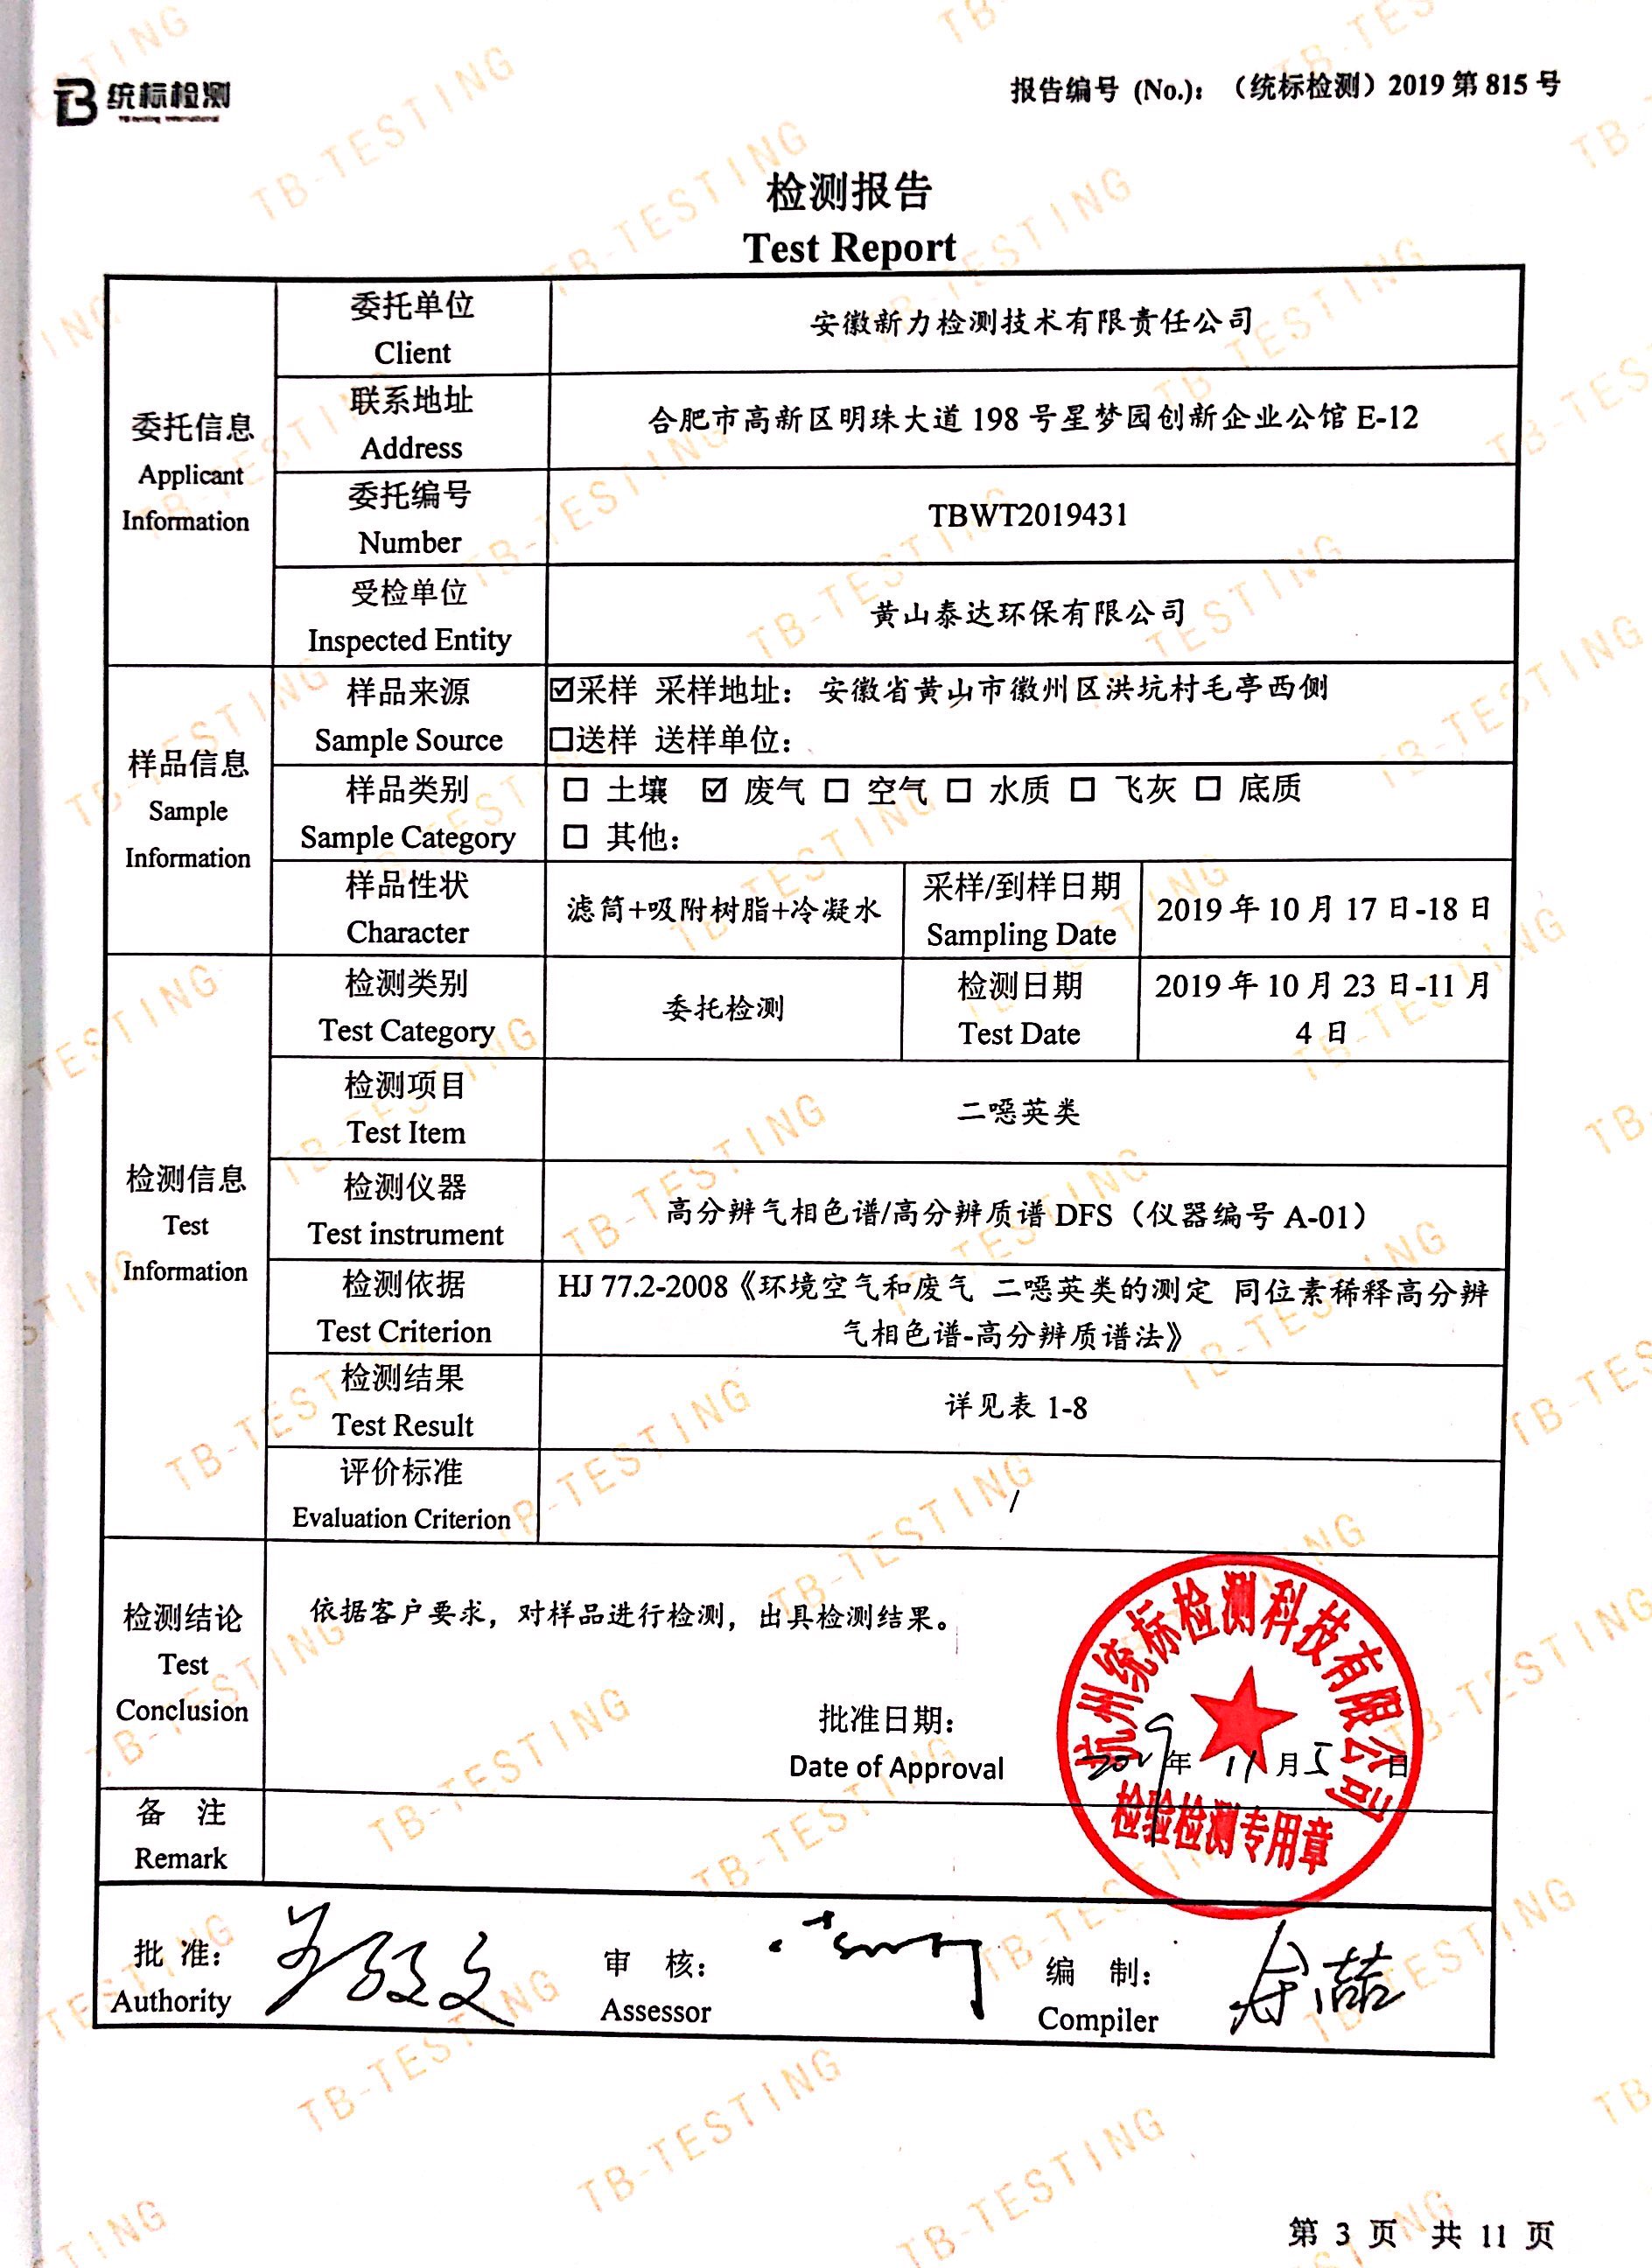 统标检测
TB testing international
报告编号 (No.)：（统标检测）2019 第 815 号
检测报告
Test Report
委托信息
Applicant
Information
委托单位
Client
安徽新力检测技术有限责任公司
联系地址
Address
合肥市高新区明珠大道 198 号星梦园创新企业公馆 E-12
委托编号
Number
TBWT2019431
受检单位
Inspected Entity
黄山泰达环保有限公司
样品信息
Sample
Information
样品来源
Sample Source
☑采样 采样地址：安徽省黄山市徽州区洪坑村毛亭西侧
□送样 送样单位：
样品类别
Sample Category
□ 土壤 ☑ 废气 □ 空气 □ 水质 □ 飞灰 □ 底质
□ 其他：
样品性状
Character
滤筒+吸附树脂+冷凝水
采样/到样日期
Sampling Date
2019 年 10 月 17 日-18 日
检测信息
Test
Information
检测类别
Test Category
委托检测
检测日期
Test Date
2019 年 10 月 23 日-11 月
4 日
检测项目
Test Item
二噁英类
检测仪器
Test instrument
高分辨气相色谱/高分辨质谱 DFS（仪器编号 A-01）
检测依据
Test Criterion
HJ 77.2-2008《环境空气和废气 二噁英类的测定 同位素稀释高分辨
气相色谱-高分辨质谱法》
检测结果
Test Result
详见表 1-8
评价标准
Evaluation Criterion
/
检测结论
Test
Conclusion
依据客户要求，对样品进行检测，出具检测结果。
批准日期：
Date of Approval
2019 年 11 月 5 日
杭州统标检测科技有限公司
检验检测专用章
备 注
Remark
批 准：
Authority
审 核：
Assessor
编 制：
Compiler
第 3 页 共 11 页
TB-TESTING